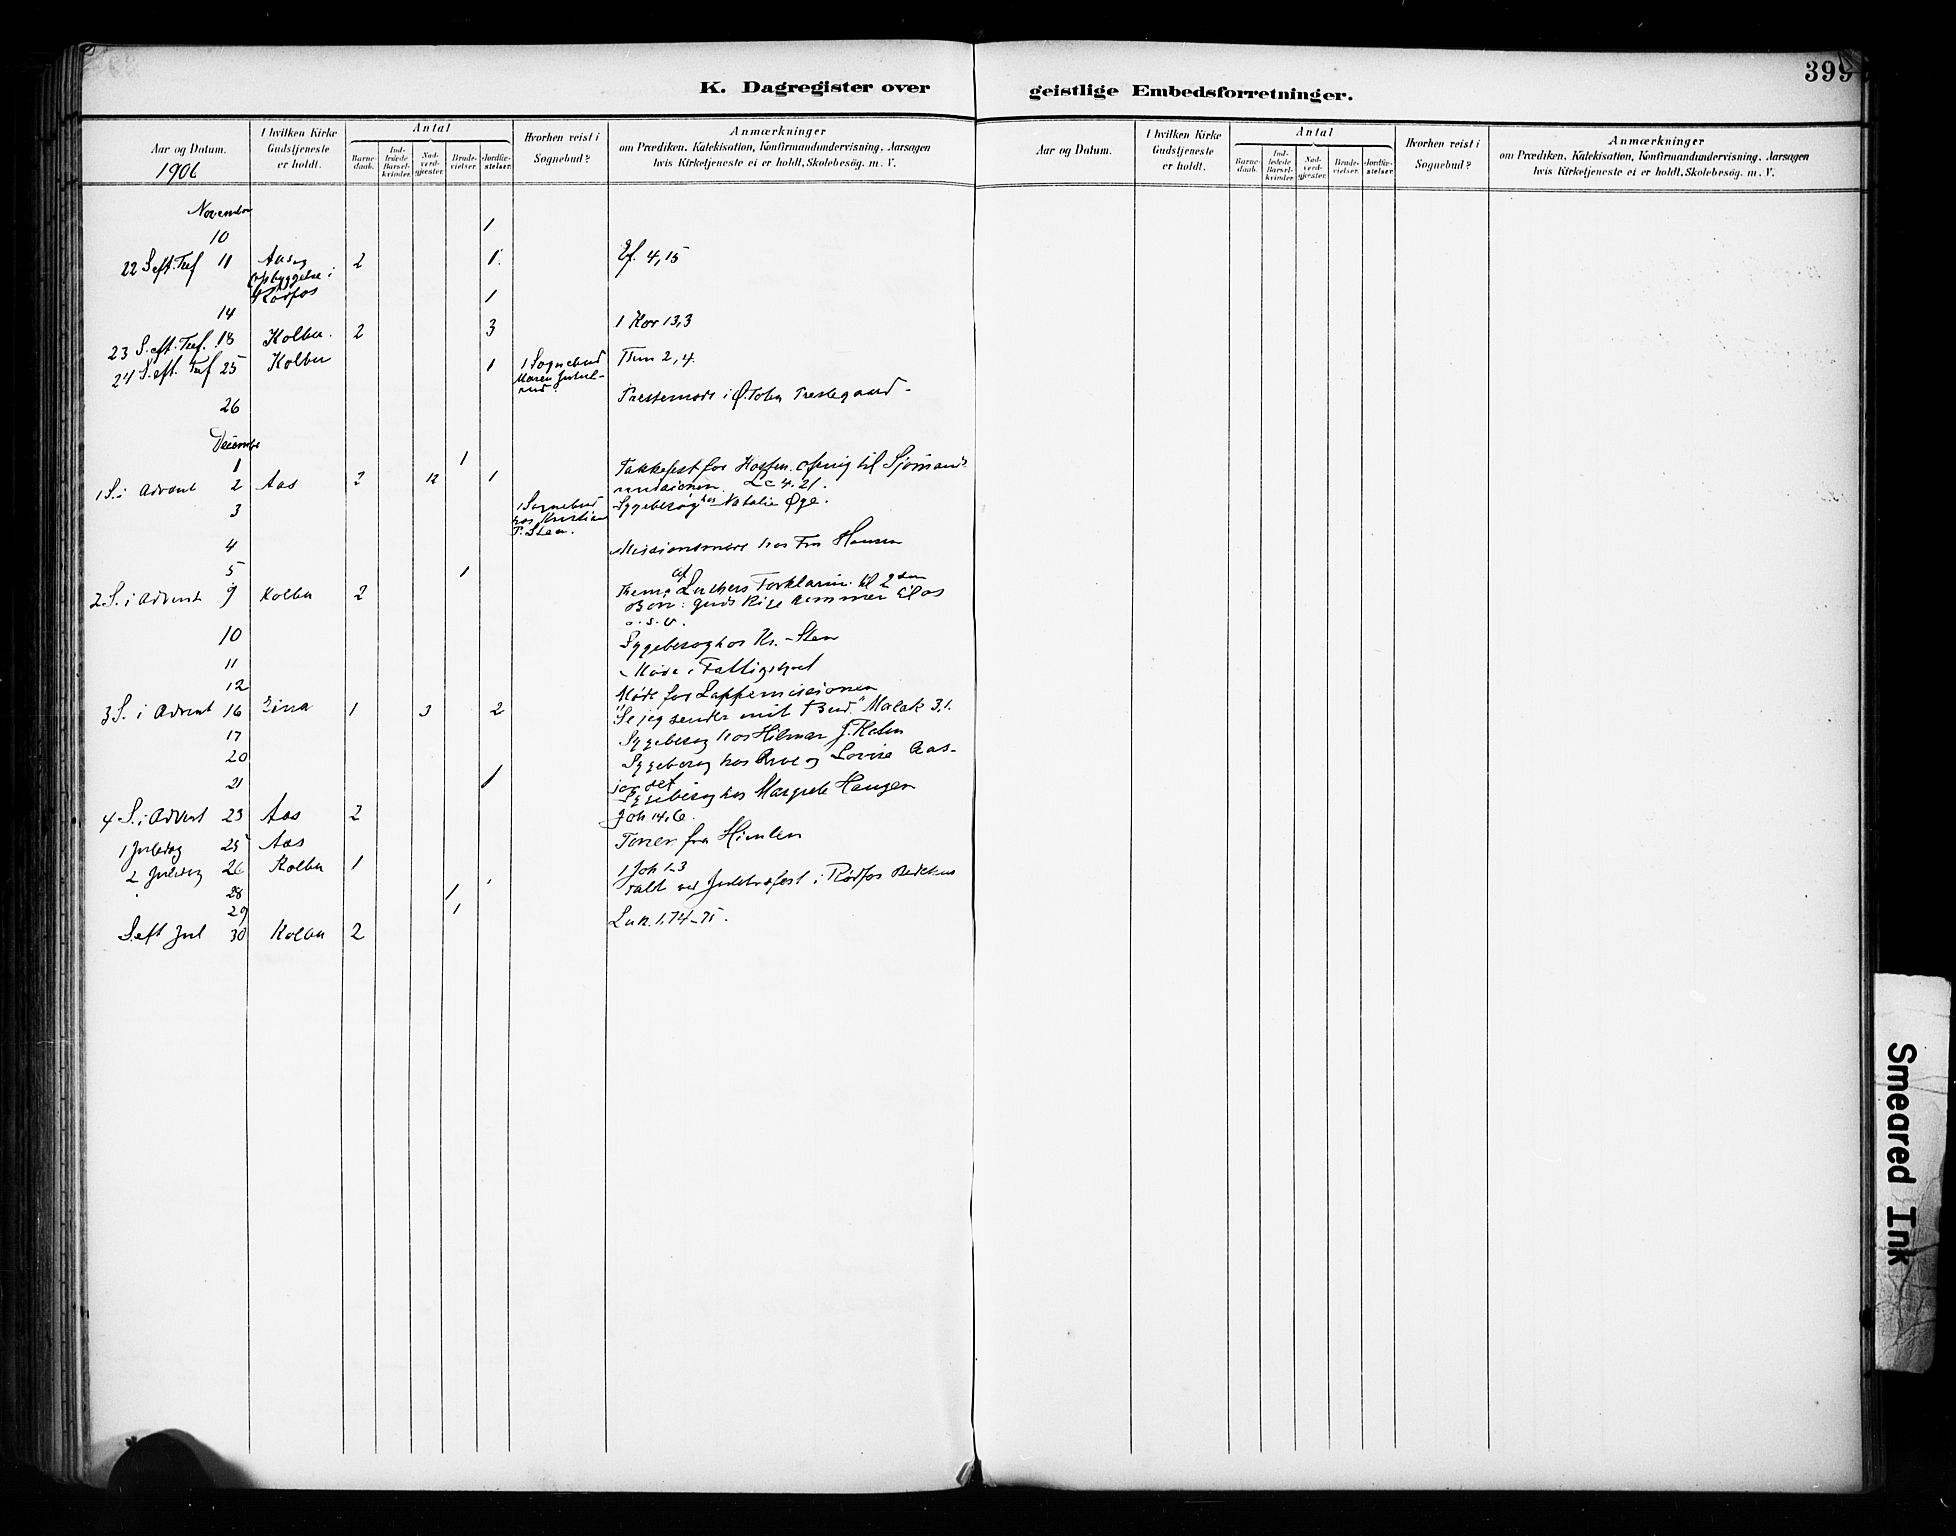 399
K. Dagregister over geistlige Embedsforretninger.
Aar og Datum. I hvilken Kirke Gudstjeneste er holdt. Antal Barne-daab. Ind-ledede Barsel-kvinder. Nad-verd-gjester. Brude-vielser. Jordfæ-stelser. Hvorhen reist i Sognebud? Anmærkninger om Prædiken, Katekisation, Konfirmandundervisning, Aarsagen hvis Kirketjeneste ei er holdt, Skolebesøg. m. V.
1906
November
10 1
22 S. eft. Tref 11 Aas og Opbyggelse i Rødfos 2 1 Ef. 4,15
14 1
23 S. eft. Tref. 18 Kolbu. 2 3 1 Kor 13,3
24 S. eft. Tref 25 Kolbu 1 1 Sognebud Maren 2,4.
26 Prestemøde i Ø. Toten Prestegaard -
December
1 1
1 S. i Advent 2 Aas 2 12 1 Takkefest for Høsten. Ofring til Sjømands
missionen Lc 4.21.
3 1 Sognebud hos Kristian P. Steen. Sygebesøg hos Natalie Øye.
4 Missionsmøde hos Fru Hansen
5 1
2 S. i Advent 9 Kolbu 2 Thema af Luthers Forklaring til 2den
Bøn: Guds Rige kommer til os
o. s. v.
10 Sygebesøg hos Kr. Steen
11 Møde i Fattigstyret
12 Møde for Lappemissionen
3 S. i Advent 16 Eina 1 3 2 "Se jeg sender mit Bud." Malak 3,1.
17 Sygebesøg hos Hilmar J.
20 Sygebesøg hos og Lovise Aas-
jordet
21 1 Sygebesøg hos Margrete Haugen
4 S. i Advent 23 Aas 2 Joh 14,6.
1 Juledag 25 Aas Toner fra Himlen
2 Juledag 26 Kolbu 1 1 Joh 1-3
28 1 talt ved Juletræfest i Rødfos
29 1
S. eft Jul 30 Kolbu 2 Luk. 1,74-75.
Aar og Datum. I hvilken Kirke Gudstjeneste er holdt. Antal Barne-daab. Ind-ledede Barsel-kvinder. Nad-verd-gjester. Brude-vielser. Jordfæ-stelser. Hvorhen reist i Sognebud? Anmærkninger om Prædiken, Katekisation, Konfirmandundervisning, Aarsagen hvis Kirketjeneste ei er holdt, Skolebesøg. m. V.
Smeared Ink